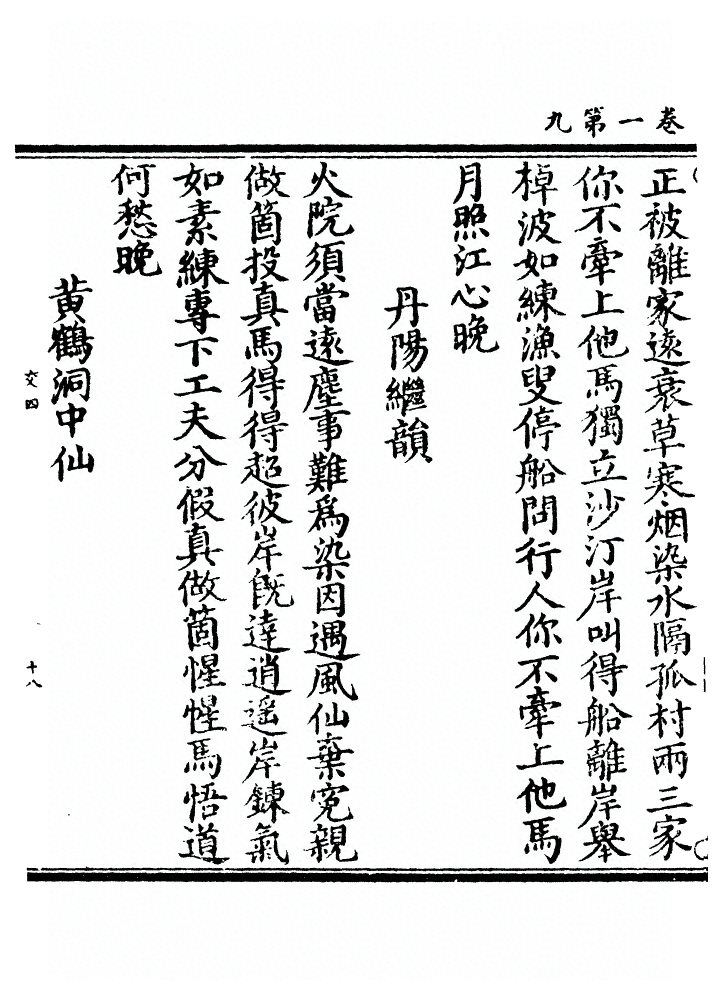 卷一第九
正被離家遠衰草寒烟染水隔孤村兩三家
你不牽上他馬獨立沙汀岸叫得船離岸舉
棹波如練漁叟停船問行人你不牽上他馬
月照江心晚
丹陽繼韻
火院須當遠塵事難爲染因遇風仙棄寃親
做箇投真馬得得超彼岸旣達逍遥岸鍊氣
如素練專下工夫分假真做箇惺惺馬悟道
何愁晚
黄鶴洞中仙
交四
十八